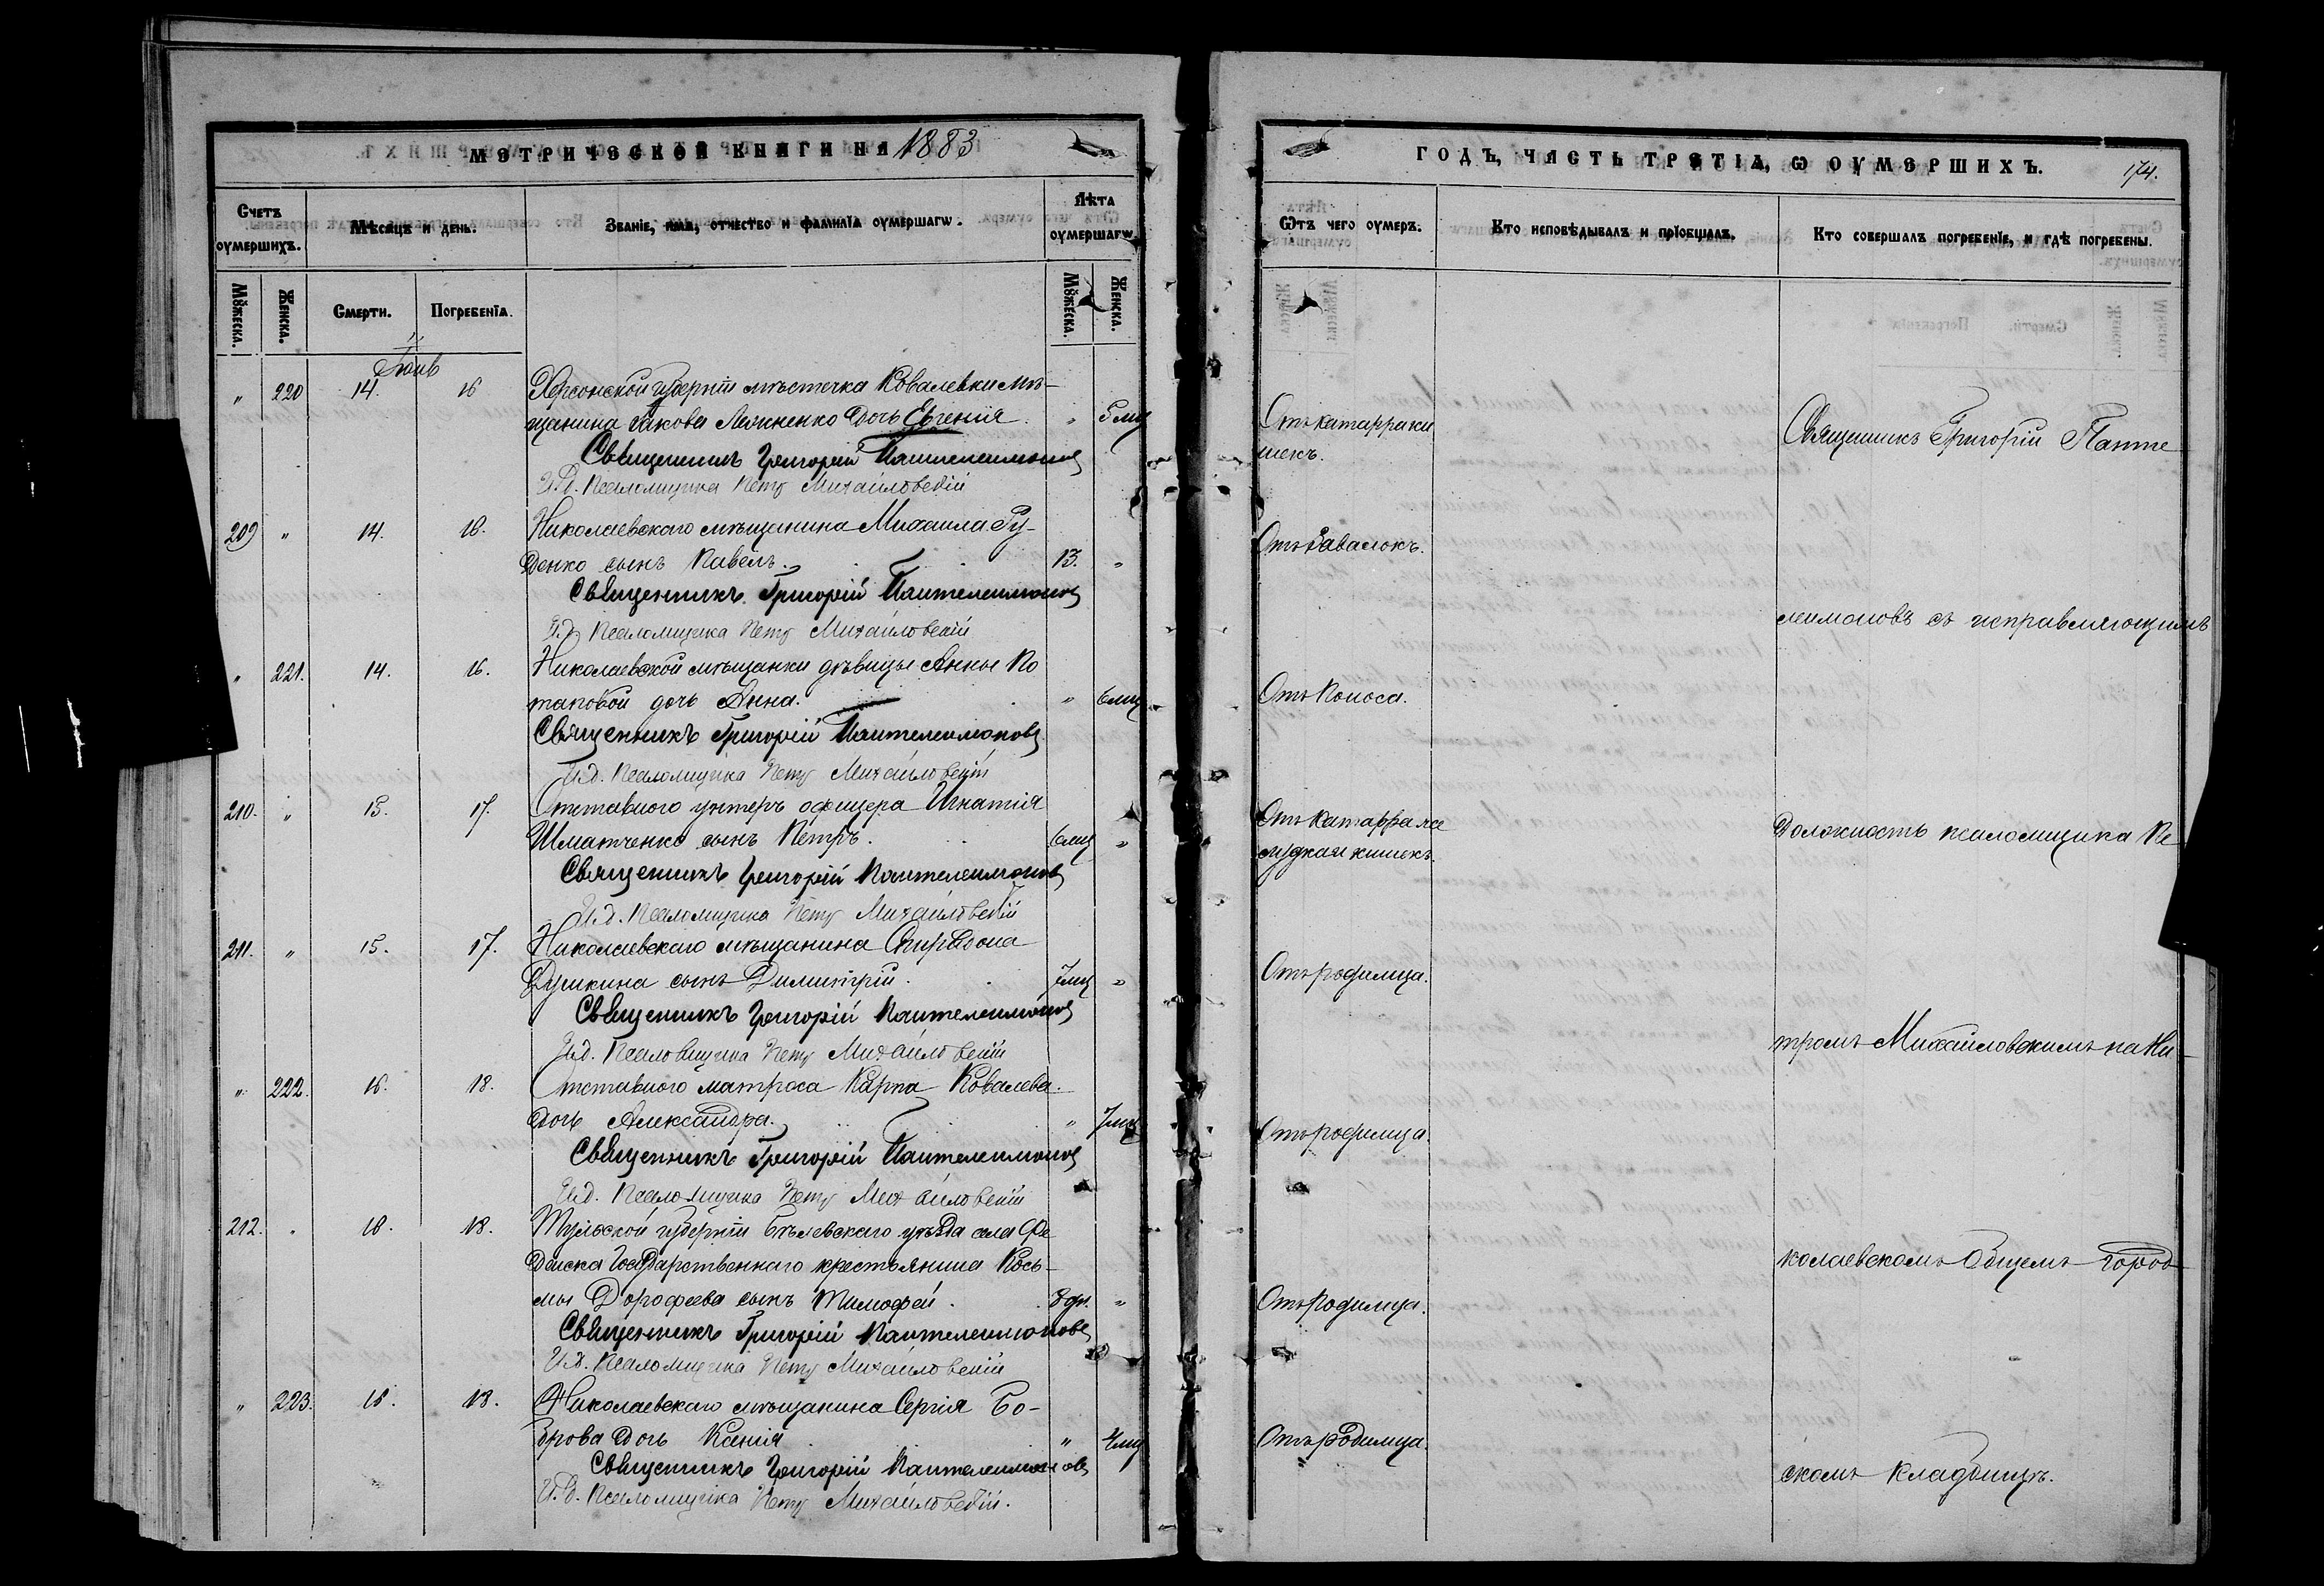 МЕТРИЧЕСКОЙ КНИГИ НА 1883
Счетъ оумершихъ.
Мѣсяцъ и день.
Званіе, имя, отчество и фамилїа оумершагѡ.
Лѣта оумершагѡ
Мꙋжеска.
Женска.
Смерти.
Погребенїа.
Мꙋжеска.
Женска.
Іюнь
" 220 14. 16 Херсонской губерніи мѣстечка Ковалевки мѣ-
щанина Іакова дочь Евгенія. " 5 мц
Священникъ Григорій Пантелеимоновъ
И.д. Псаломщика Петръ Михайловскій
209 " 14. 16. Николаевскаго мѣщанина Михаила Ру-
денко сынъ Павелъ. 13. "
Священникъ Григорій Пантелеимоновъ
И.д. Псаломщика Петръ Михайловскій
" 221. 14. 16. Николаевской мѣщанки дѣвицы Анны По
таповой дочь Анна. " 6 мц
Священникъ Григорій Пантелеимоновъ
И.д. Псаломщика Петръ Михайловскій
210. " 15. 17. Отставного унтеръ офицера Игнатія
Шматченко сынъ Петръ. 6 мц "
Священникъ Григорій Пантелеимоновъ
И.д. Псаломщика Петръ Михайловскій
211. " 15. 17. Николаевскаго мѣщанина Спиридона
Душкина сынъ Димитрій. 7 мц "
Священникъ Григорій Пантелеимоновъ
И.д. Псаломщика Петръ Михайловскій
" 222. 16. 18. Отставного матроса Карпа Ковалева
дочь Александра. " 7 мц
Священникъ Григорій Пантелеимоновъ
И.д. Псаломщика Петръ Михайловскій
212. " 16. 18. Тульской губерніи Бѣлевскаго уѣзда села Фе
дянска Государственнаго крестьянина Кось-
мы Дорофеева сынъ Тимофей. 8 дн. "
Священникъ Григорій Пантелеимоновъ
И.д. Псаломщика Петръ Михайловскій
" 223. 16. 18. Николаевскаго мѣщанина Сергія Бо-
брова дочь Ксенія " 4 мц
Священникъ Григорій Пантелеимоновъ
И.д. Псаломщика Петръ Михайловскій.
ГОДЪ, ЧАСТЬ ТРЕТІА, Ѡ ОУМЕРШИХЪ.
174.
Ѿтъ чего оумеръ.
Кто исповѣдывалъ и прїобщалъ.
Кто совершалъ погребенїе, и гдѣ погребены.
Отъ катарра ки
шекъ.
Священникъ Григорій Панте
Отъ Завалокъ.
леимоновъ съ исправляющимъ
Отъ Поноса.
Отъ катарра же
лудка и кишекъ.
Должность псаломщика Пе
Отъ родимца.
тромъ Михайловскимъ на Ни-
Отъ родимца.
колаевскомъ Общемъ Город
Отъ Родимца.
Отъ родимца.
скомъ кладбищѣ.